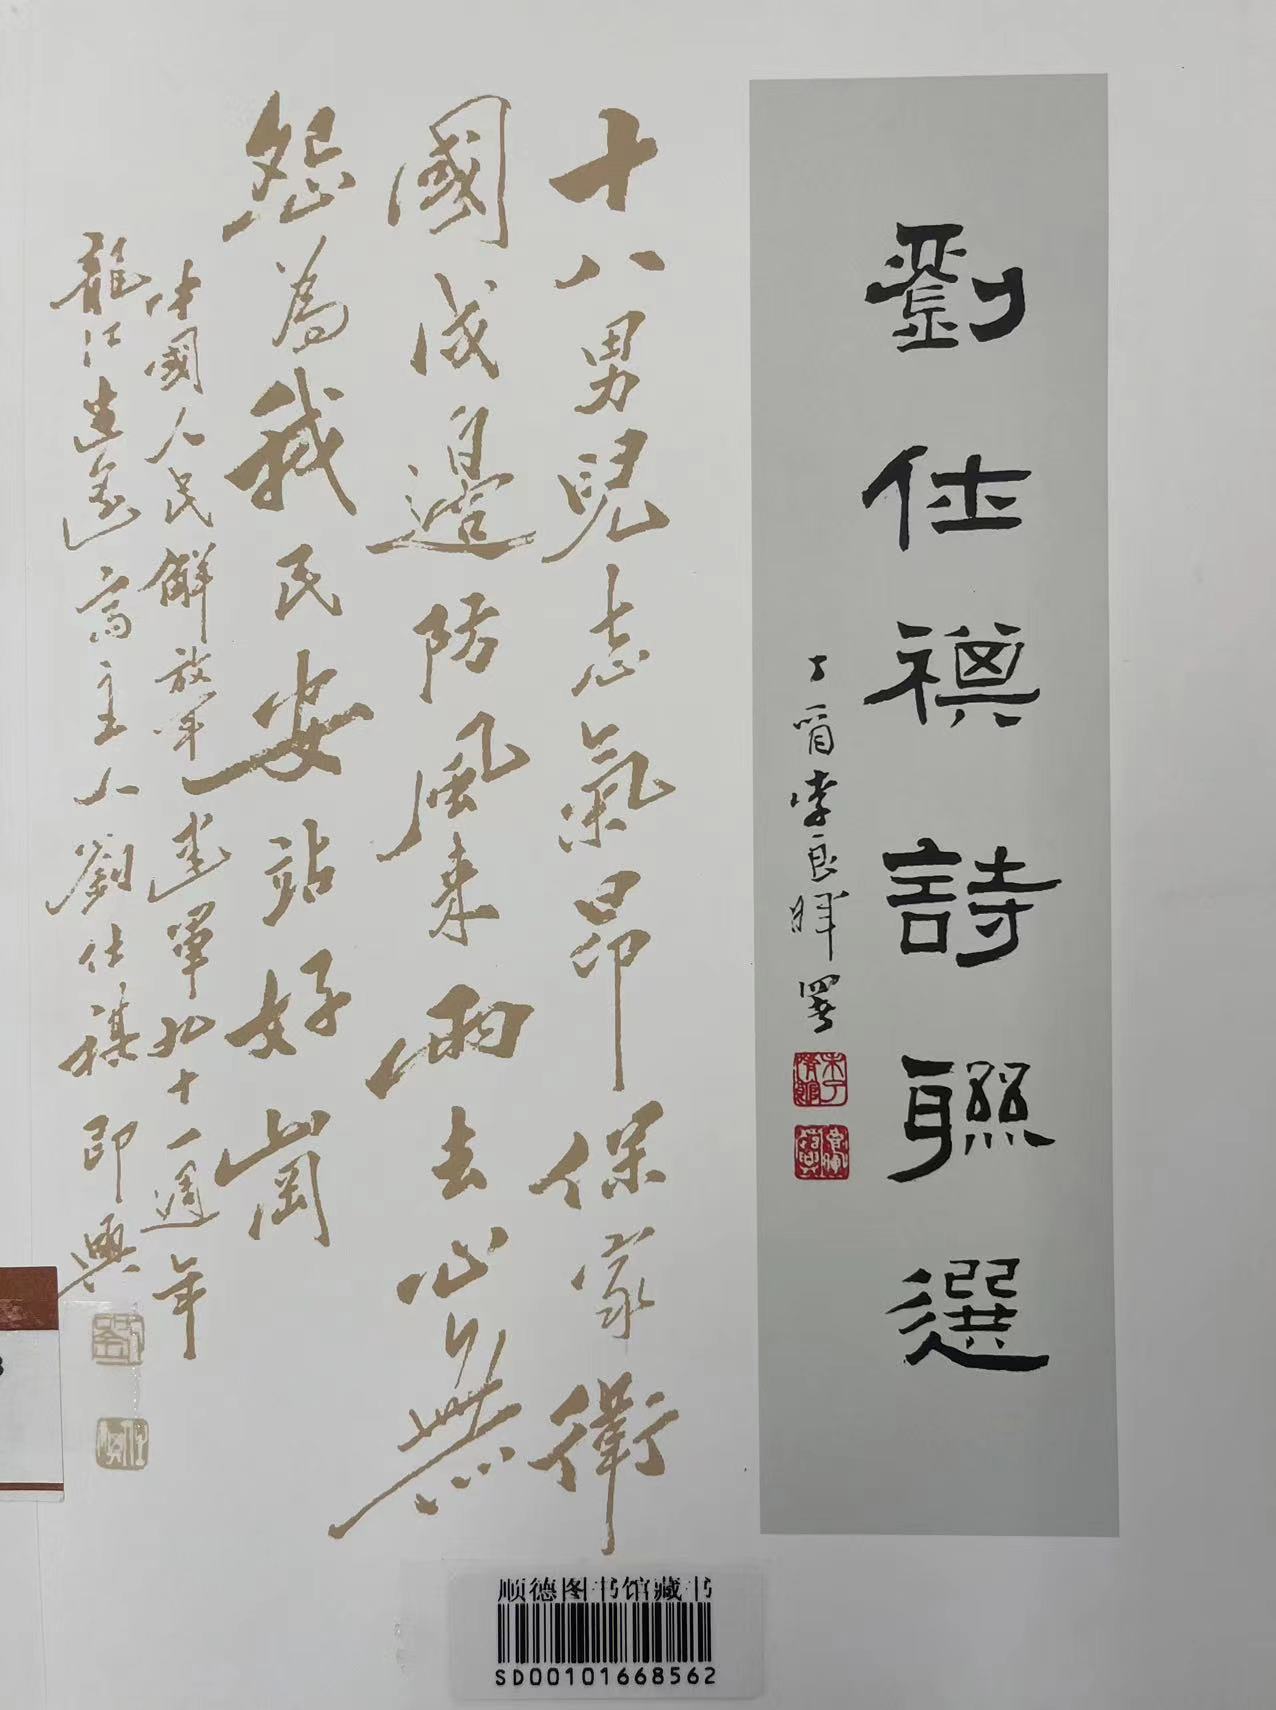 劉仕禥詩聯選
丁酉李良暉署
十八男兒志氣昂保家衛
國戍邊防風来雨去心無
怨為我民安站好崗
中國人民解放军建軍九十一週年
龍江逍遙齋主人劉仕禥即興
顺德图书馆藏书
SD00101668562